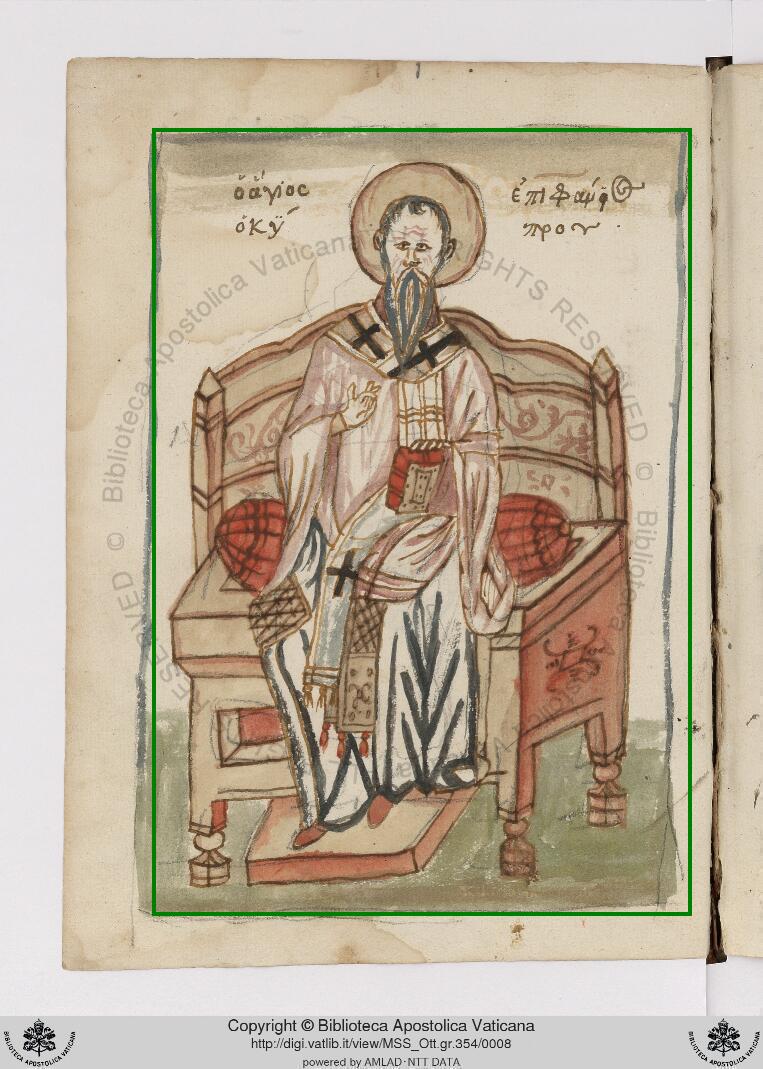 ὁ ἅγιος ἐπιφάνιος
ὁ κύ πρου
Biblioteca Apostolica Vaticana
RIGHTS RESERVED © Biblioteca Apostolica V
RESERVED © Biblioteca Apostolica Vaticana
Copyright © Biblioteca Apostolica Vaticana
http://digi.vatlib.it/view/MSS_Ott.gr.354/0008
powered by AMLAD·NTT DATA
BIBLIOTECA APOSTOLICA VATICANA
BIBLIOTECA APOSTOLICA VATICANA